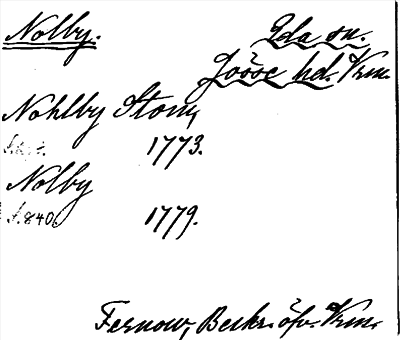 Nolby.
Eda sn.
Jösse hd. Vrm.
Nohlby Stom,
1773.
Nolby
s. 840.
1779.
Fernow, Beskr. öfv. Vrm.